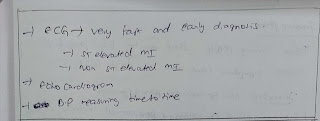 → ECG → very fast and early diagnosis
→ ST elevated MI
→ non ST elevated MI
→ Echo cardiogram
→ BP measuring time to time